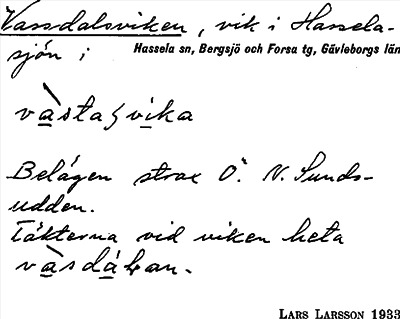 Vassdalsviken, vik i Hassela-
sjön;
Hassela sn, Bergsjö och Forsa tg, Gävleborgs län
Belägen strax Ö. N. Sunds-
udden.
Täkterna vid viken heta
LARS LARSSON 1933